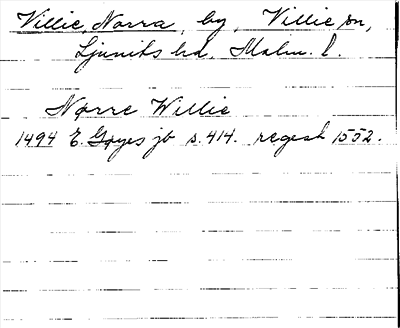 Villie, Norra, by, Villie sn,
Ljunits hd, Malm. l.
Nørre Willie
1494 E. Gøyes jb s. 414. regest 1552.